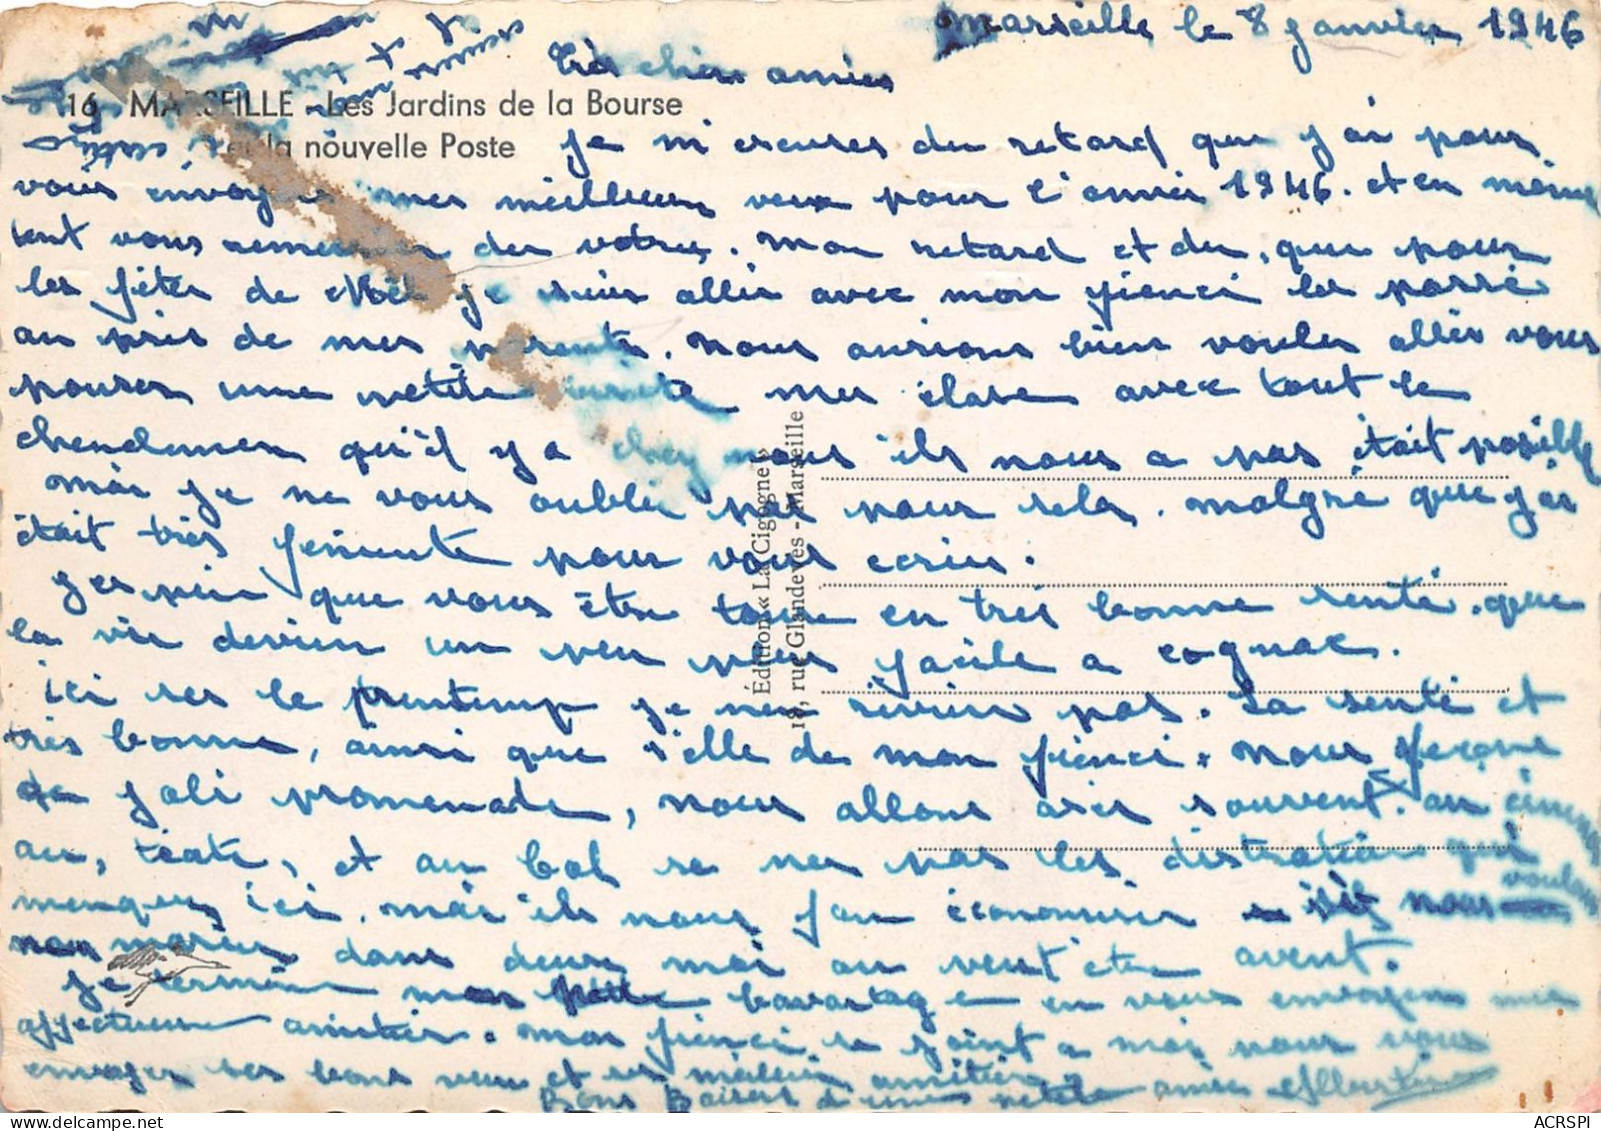 Marseille le 8 janvier 1946
Très chers amies
16. MARSEILLE - Les Jardins de la Bourse
et la nouvelle Poste
Je m'escuses du retard que j'ai pour
vous envoyer mes meilleurs veux pour l'année 1946. et en même
tent vous remercier des votres. Mon retard et du, que pour
les fêtes de Noël je suis allée avec mon fiencé les passé
au près de mes parents. Nous aurions bien voulu allés vous
pousser une petite visite, mes élase avec tout le
chendemen qu'il y a chez nous ils nous a pas était posible
mai je ne vous oublie pas pour sela. Malgré que j'ai
était très feniente pour vous ecrire.
J'espére que vous ête tous en très bonne senté. que
la vie devien un peu plus facile a cognac.
ici ses le printemp je ne revien pas. La senté et
très bonne, ainsi que s'elle de mon fiencé. Nous feçons
de joli promenade, nous allons aser souvent au cinema
au, téate, et au bal se ne pas les distration qui
menques ici. Mai ils nous fau économiser si nous voulons
nous marier dans deux moi au vent être avent.
Je termine mon petit bavartage en vous envoyen mes
affectueuse amitiés. Mon fiencé se joint a moi pour vous
envoyer ses bons veux et ses meilleurs amitiés
Bons Baisers d'une petite amie Albertine
Édition « La Cigogne »
18, rue Glandeves - Marseille
ACRSPI